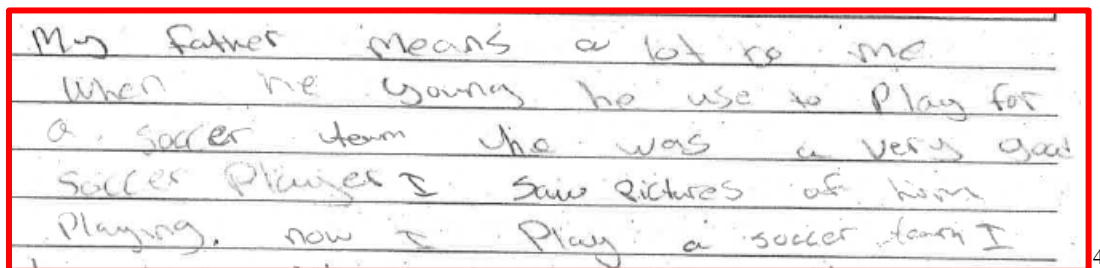 My father means a lot to me
When he young he use to Play for
a soccer team he was a very good
soccer Player I saw Pictures of him
Playing. now I Play a soccer team I
4